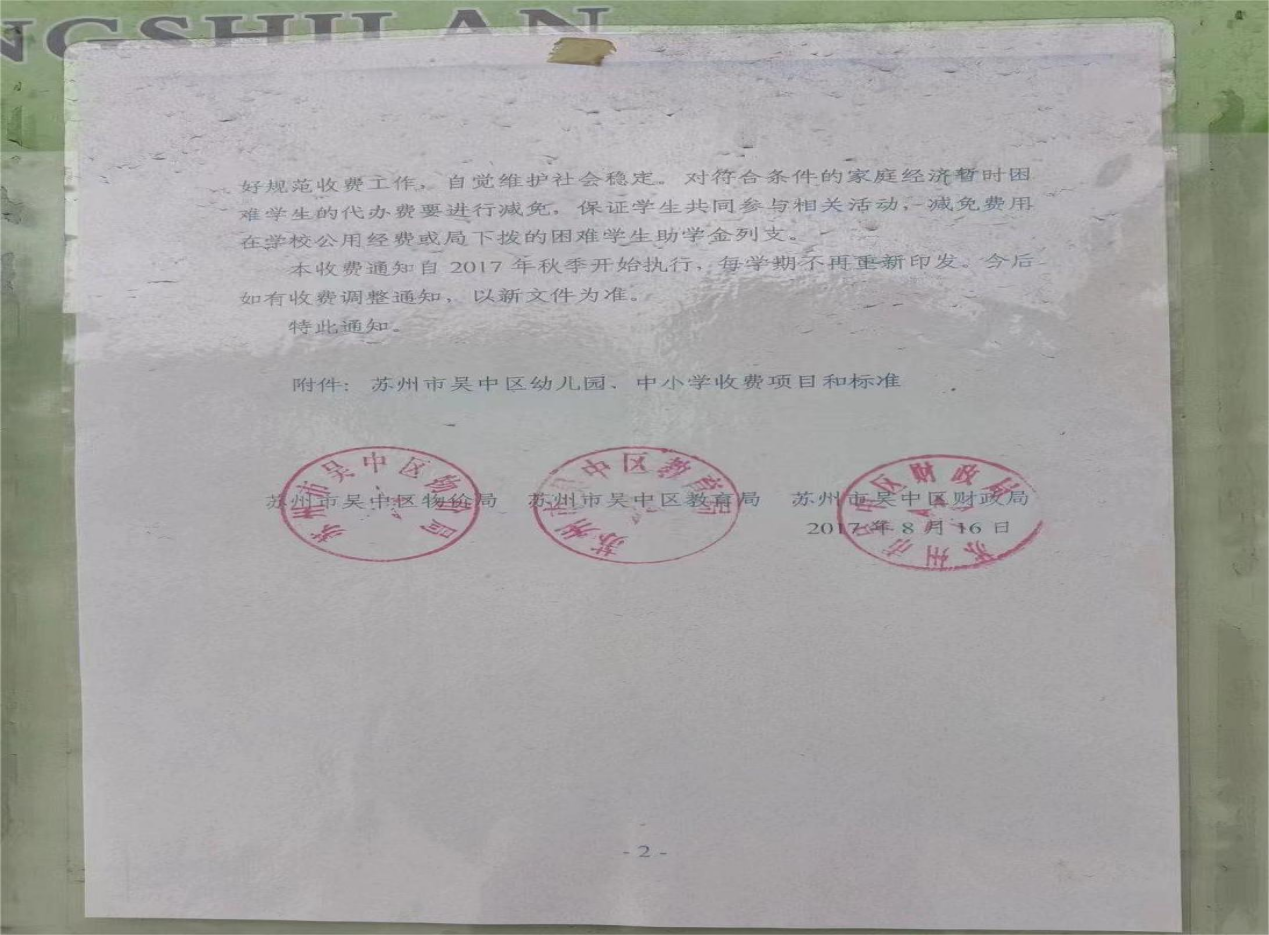 NGSHILAN
好规范收费工作，自觉维护社会稳定。对符合条件的家庭经济暂时困
难学生的代办费要进行减免，保证学生共同参与相关活动，减免费用
在学校公用经费或局下拨的困难学生助学金列支。
本收费通知自 2017 年秋季开始执行，每学期不再重新印发。今后
如有收费调整通知，以新文件为准。
特此通知。
附件：苏州市吴中区幼儿园、中小学收费项目和标准
苏州市吴中区物价局 苏州市吴中区教育局 苏州市吴中区财政局
2017 年 8 月 16 日
苏州市吴中区物价局
苏州市吴中区教育局
苏州市吴中区财政局
- 2 -